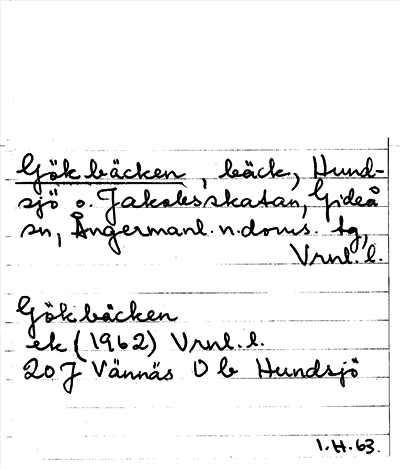 Gökbäcken, bäck, Hund-
sjö o. Jakobsskatan, Gideå
sn, Ångermanl. n. doms. tg,
Vrnl. l.
Gökbäcken
ek (1962) Vrnl. l.
20 J Vännäs O b Hundsjö
1.H.63.